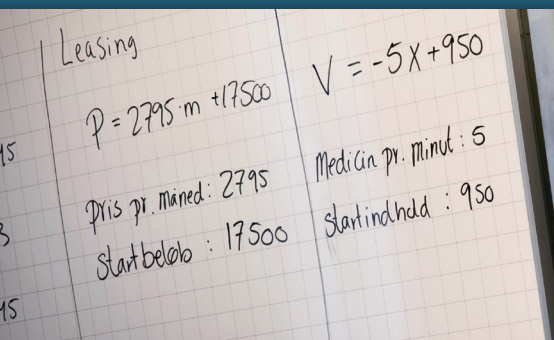 Leasing
P = 2795·m +17500
Pris pr. måned: 2795
Startbeløb : 17500
V = -5x+950
Medicin pr. minut : 5
Startindhold : 950
15
3
15